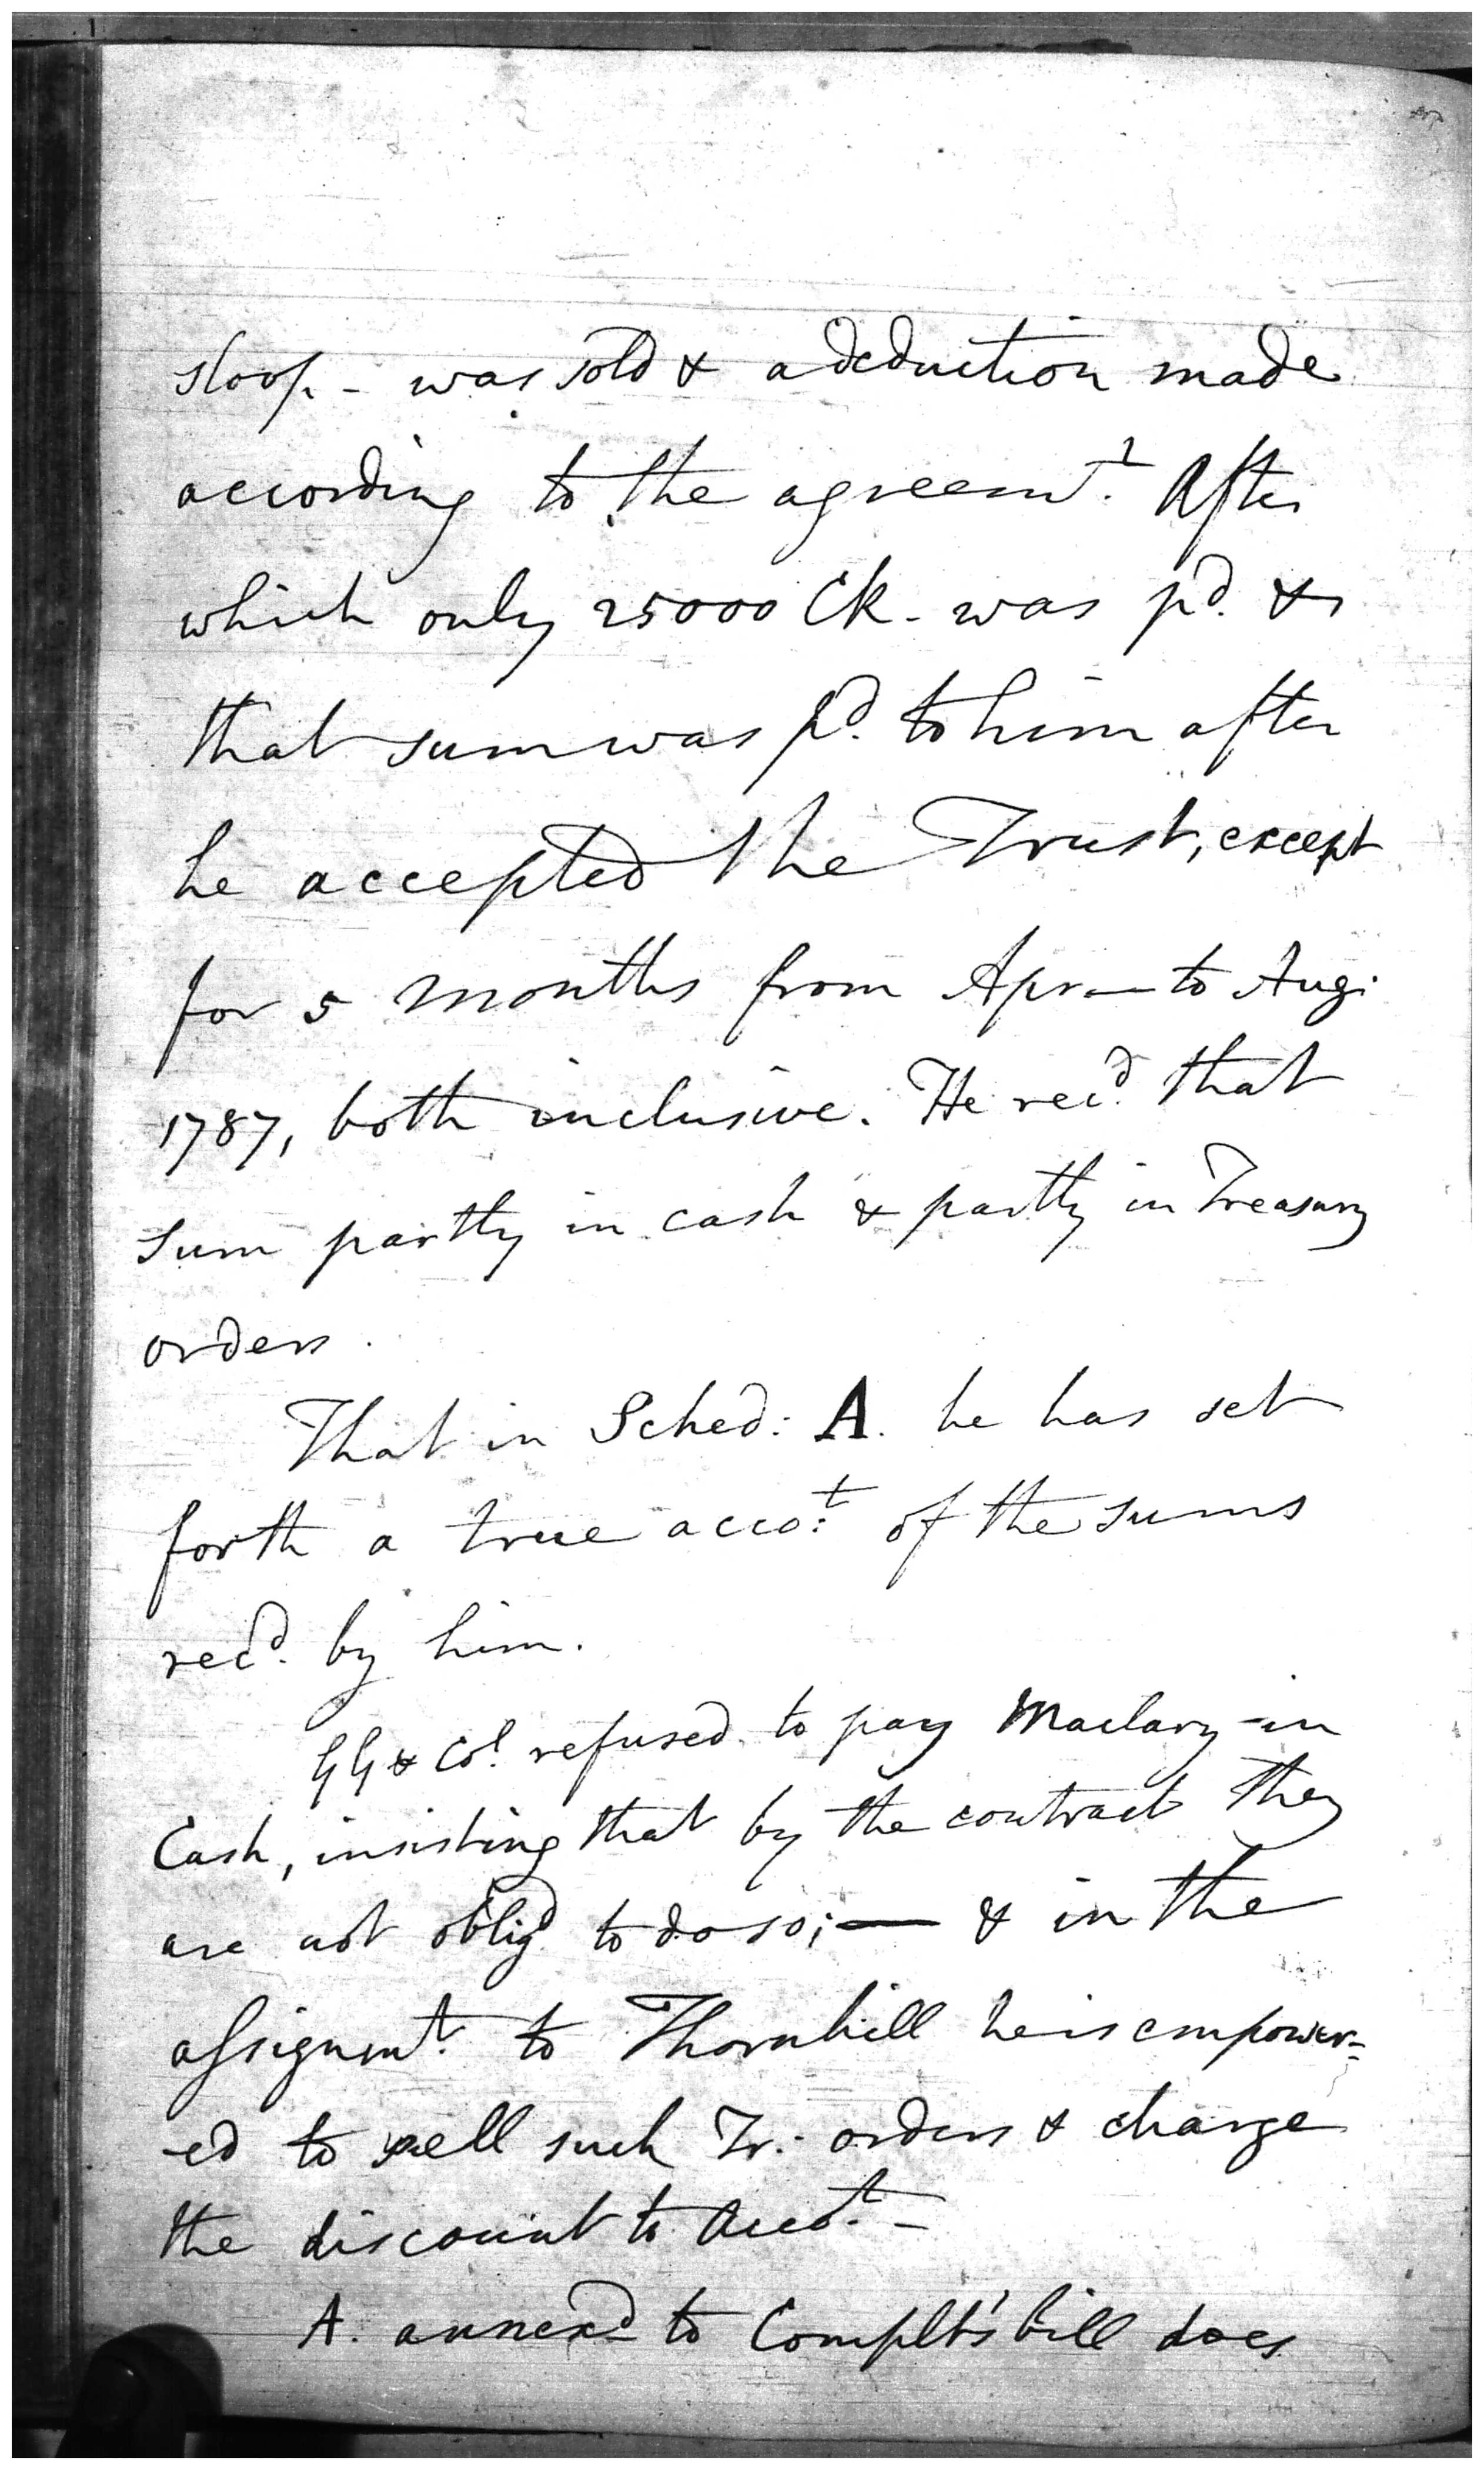 sloop - was sold & a deduction made
according to the agreemt. After
which only 25000 Ck. was pd. &
that sum was pd. to him after
he accepted the Trust, except
for 5 months from Apr— to Aug.
1787, both inclusive. He recd. that
sum partly in cash & partly in Treasury
orders.
That in Sched: A. he has set
forth a true accot. of the sums
recd. by him.
GG & Co. refused to pay Maclary in
Cash, insisting that by the contract they
are not obligd to do so; — & in the
assignmt. to Thornhill he is empower=
ed to sell such Tr. orders & charge
the discount to Accot. -
A. annexd to Complts' bill does